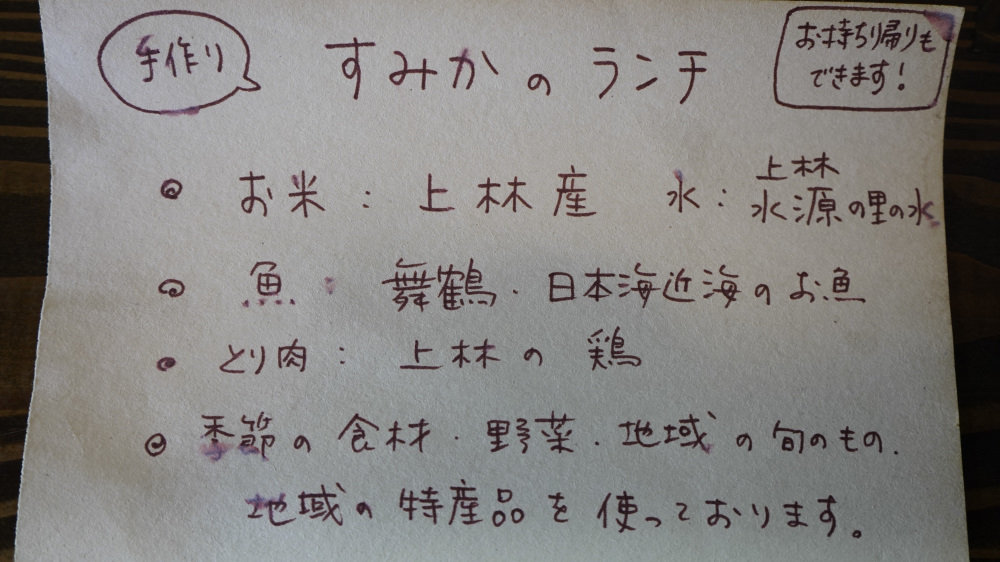 手作り
すみかのランチ
お持ち帰りも
できます!
◎ お米：上林産 水：上林
水源の里の水
◎ 魚：舞鶴・日本海近海のお魚
◎ とり肉：上林の鶏
◎ 季節の食材・野菜・地域の旬のもの.
地域の特産品を使っております。